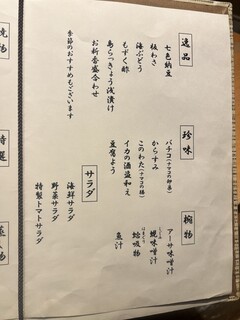 逸品
七色納豆
板わさ
海ぶどう
もずく酢
島らっきょう浅漬け
お新香盛合わせ
季節のおすすめもございます
珍味
バチコ(ナマコの卵巣)
からすみ
このわた(ナマコの腸)
イカの酒盗和え
豆腐よう
サラダ
海鮮サラダ
野菜サラダ
特製トマトサラダ
椀物
アーサ味噌汁
蜆味噌汁
蛤吸物
魚汁
焼物
特選